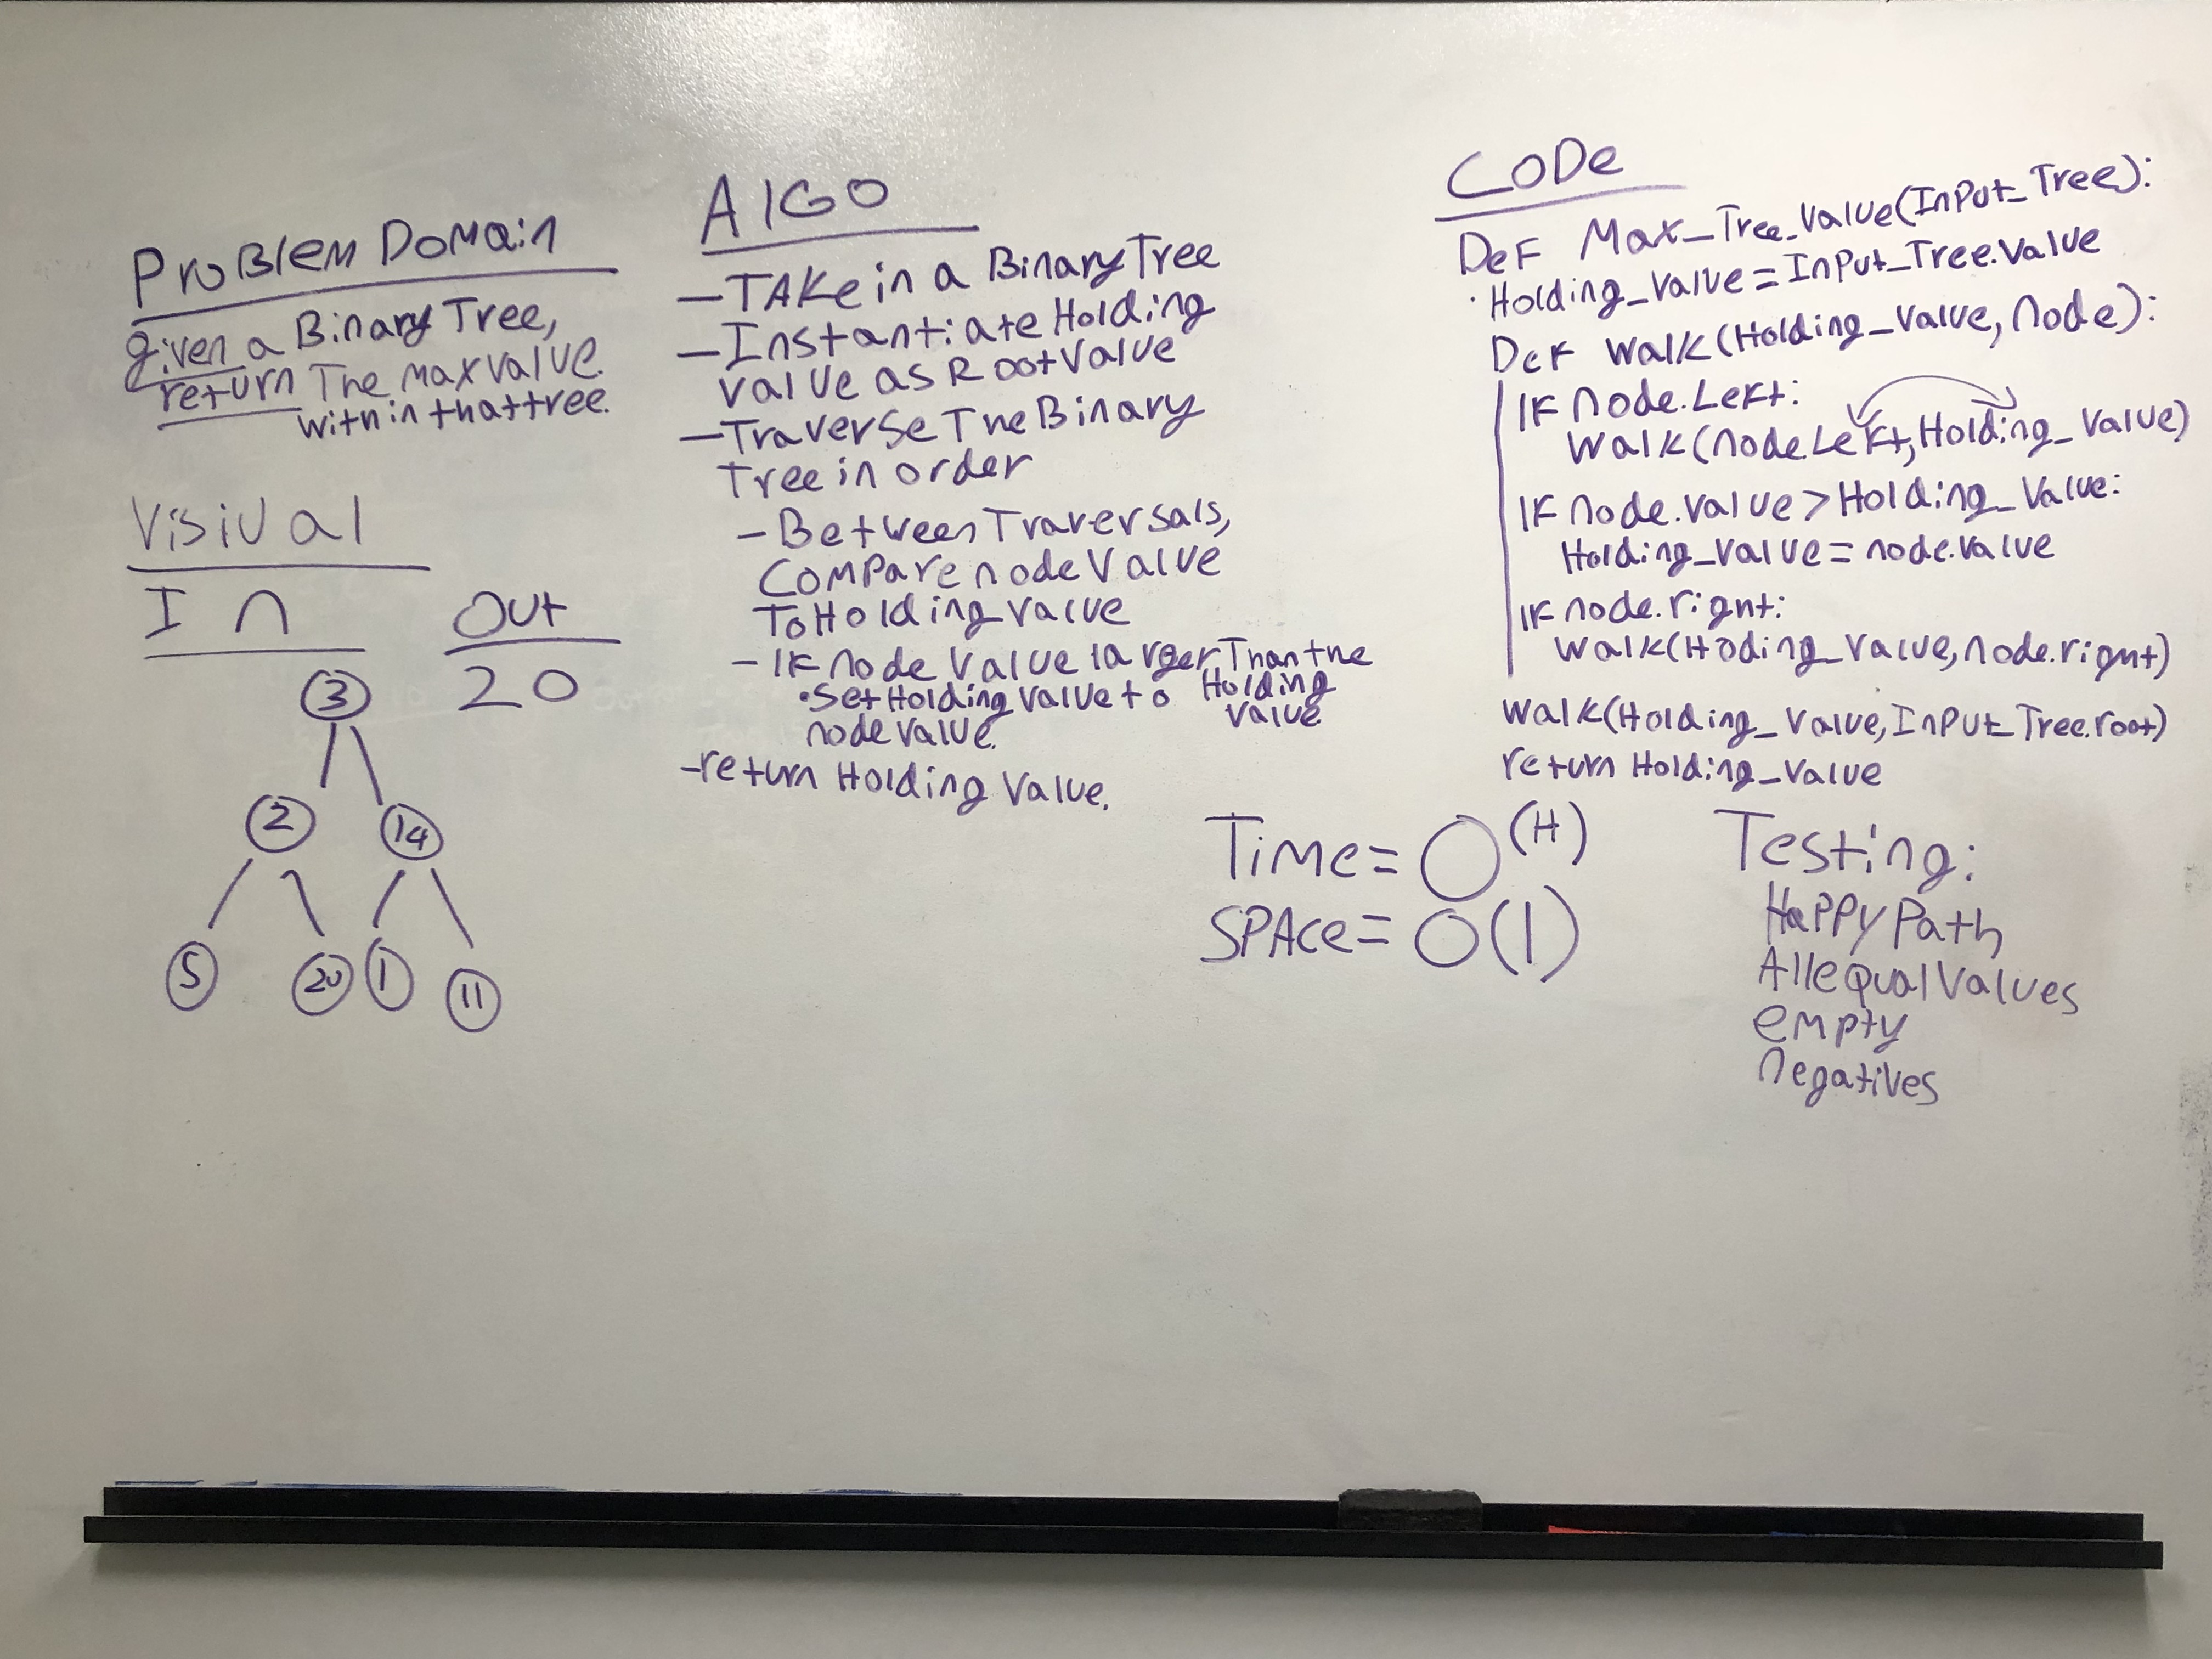 Problem Domain
given a Binary Tree,
return The max value
within that tree.
Visiual
In
Out
3
20
2
14
5
20
1
11
AlGO
- TAke in a Binary Tree
- Instantiate Holding
value as Root value
- Traverse The Binary
Tree in order
- Between Traversals,
Compare node Value
To Holding value
- IF node Value larger Than the
Holding
value
• Set Holding value to
node value.
- return Holding Value.
CODe
DeF Max_Tree_Value(Input_Tree):
• Holding_Value = Input_Tree.Value
DeF walk(Holding_Value, node):
IF node.Left:
walk(node.Left, Holding_Value)
IF node.value > Holding_Value:
Holding_Value = node.value
IF node.right:
walk(Hoding_Value, node.right)
walk(Holding_Value, Input_Tree.root)
return Holding_Value
Time = O(H)
SPAce = O(1)
Testing:
Happy Path
All equal Values
empty
negatives